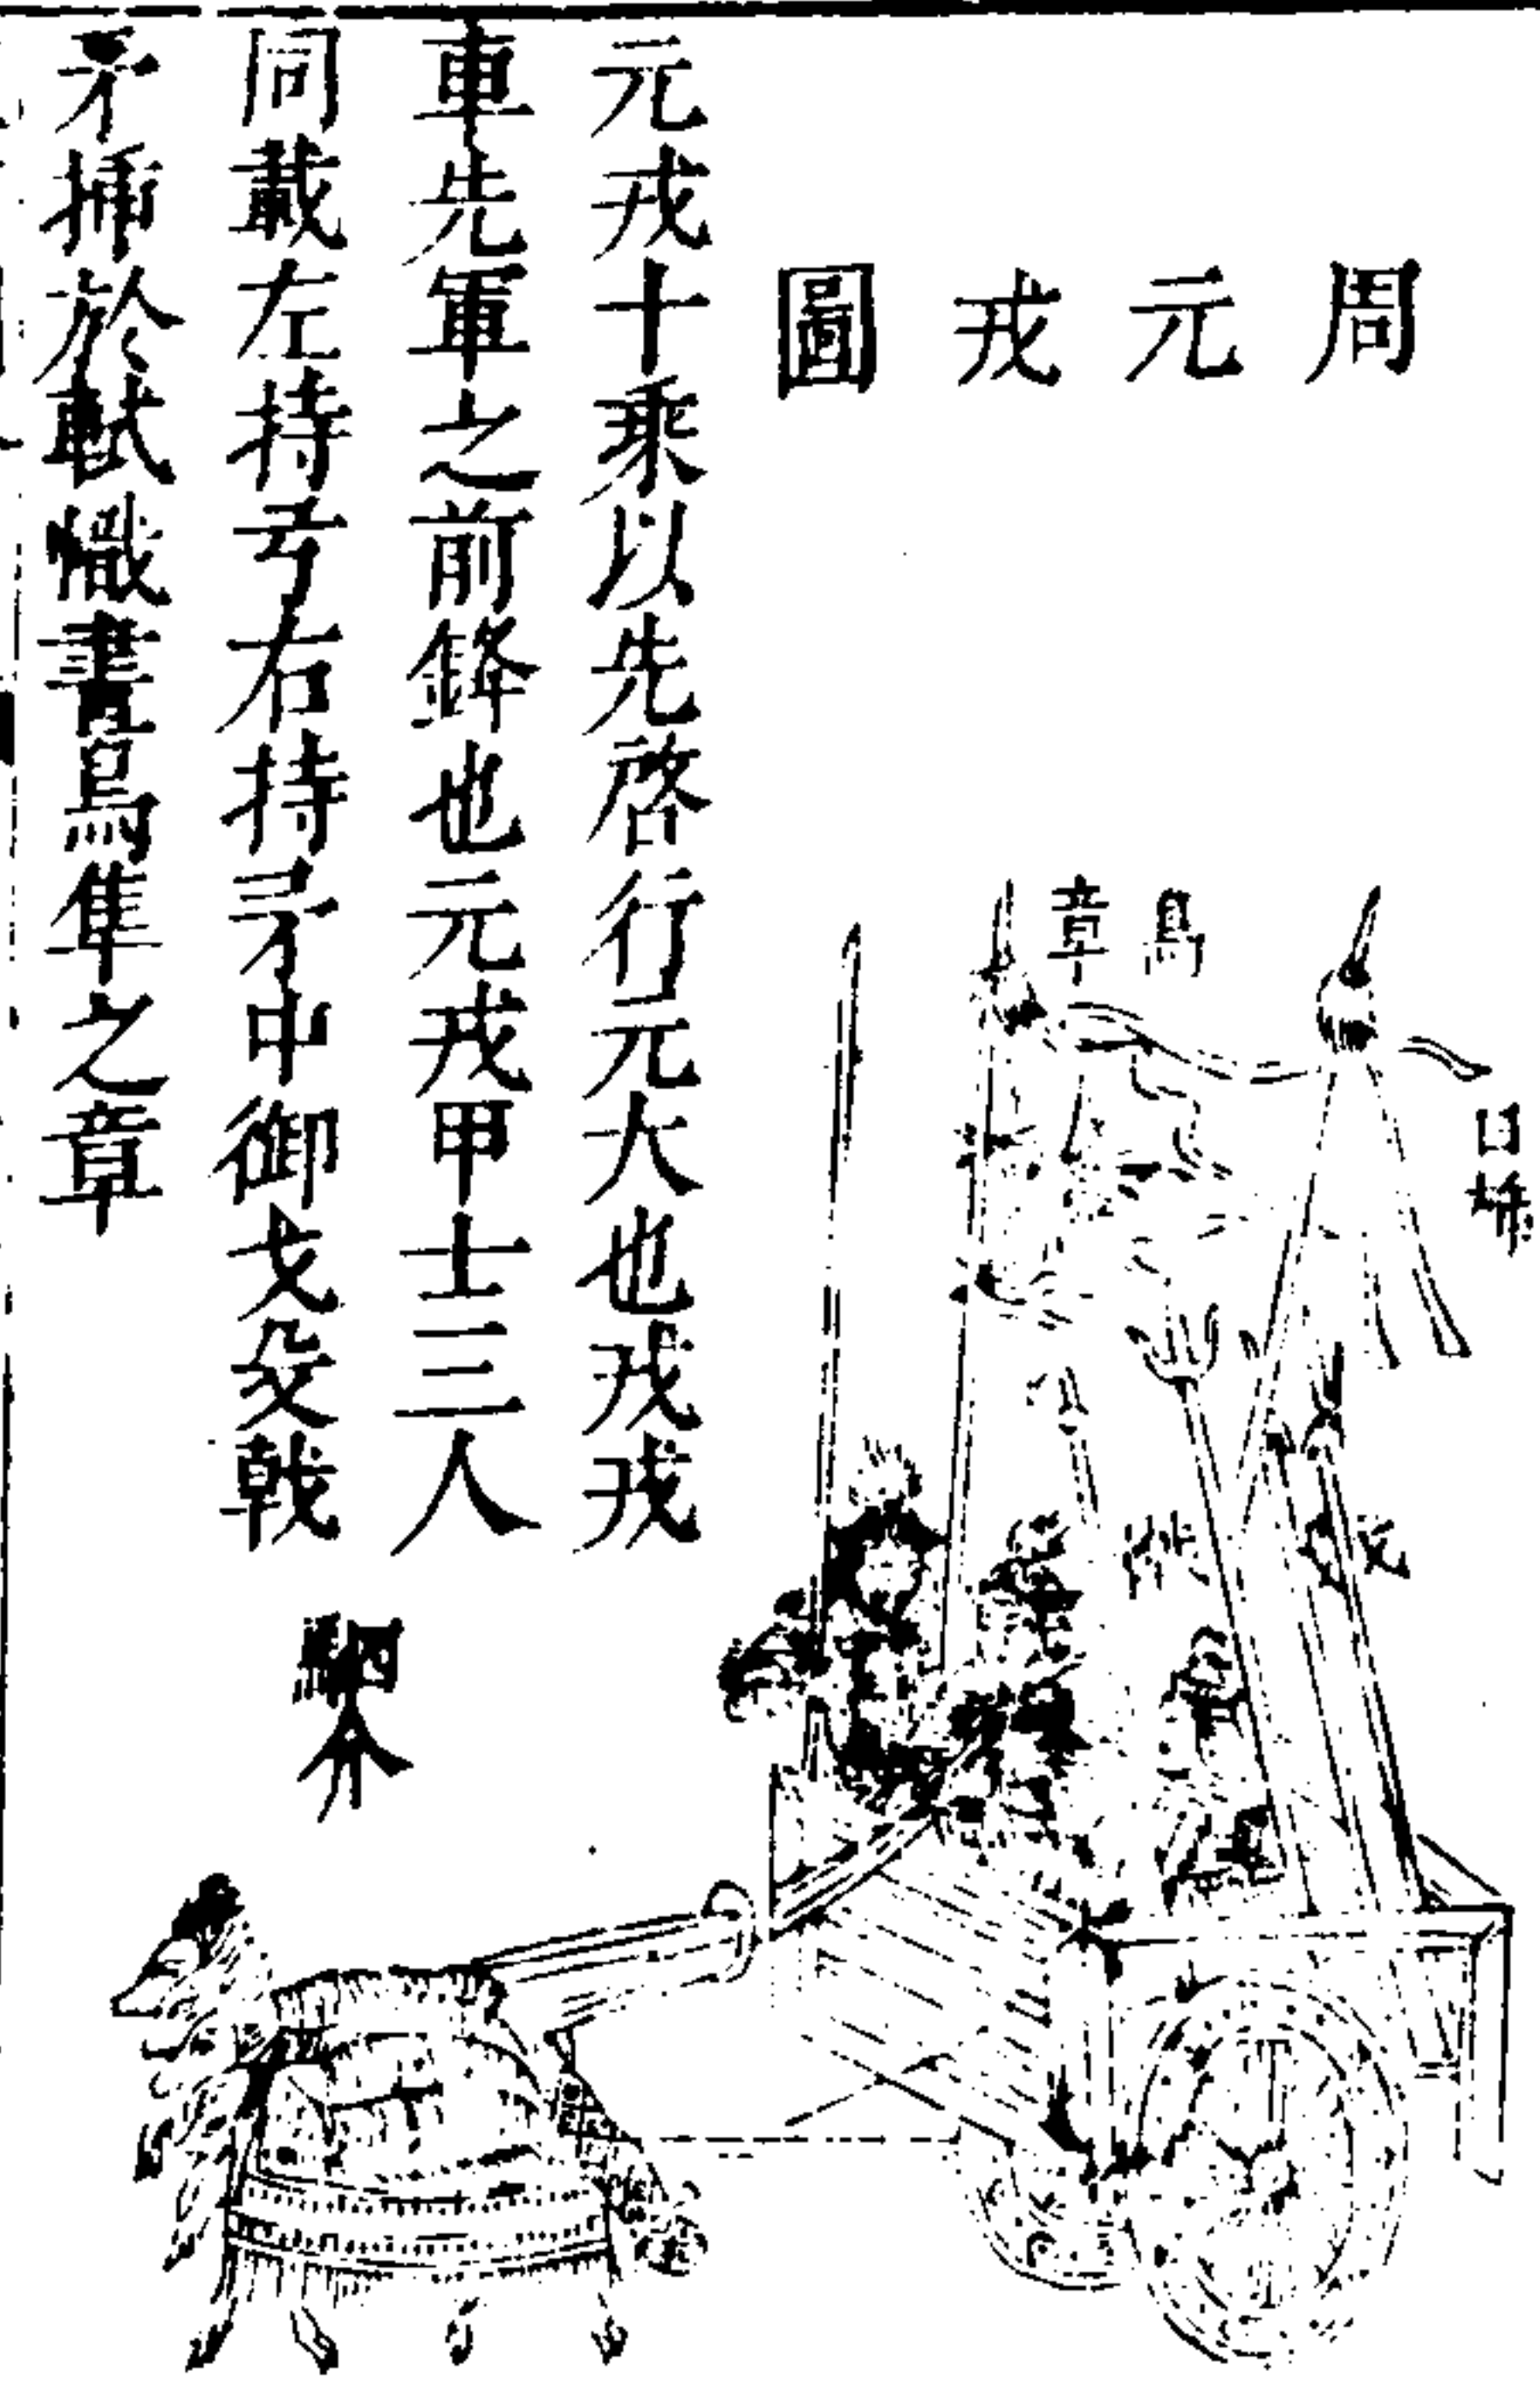 周元戎圖
元戎十乘以先啓行元大也戎戎
車先軍之前鋒也元戎甲士三人
同載左持弓右持矛中御戈殳戟
矛插於軾幟畫鳥隼之章
鳥章
駟介